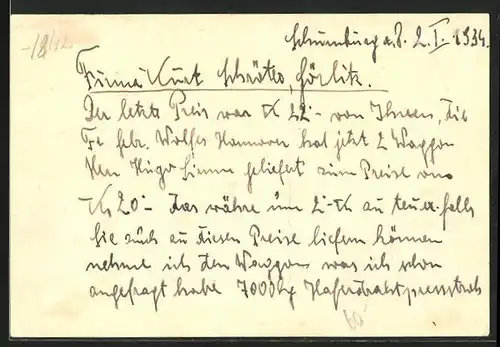 -/8/12
Schumburg a.D. 2.I.1934.
Firma Kurt Schröter, Görlitz.
Der letzte Preis war K 22.- von Ihnen, die
Fa Gebr. Wolfes Hannover hat jetzt 2 Waggon
Herr Hugo Simm geliefert zum Preise von
Kč 20.- Das währe um 2.-K zu teuer. falls
Sie auch zu diesen Preise liefern können
nehme ich den Waggon was ich schon
angefragt habe 7000kg Haferdrahtpressstroh